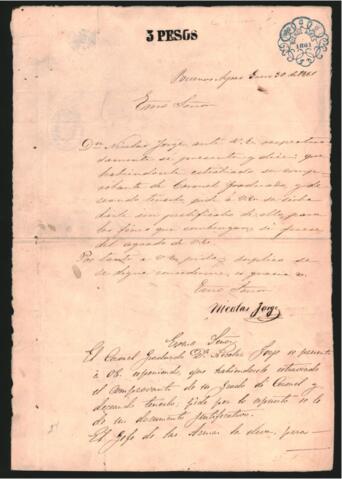 3 PESOS
1861
Buenos Ayres Enero 30 de 1861
Exmo Señor
Dn Nicolas Jorge ante V.E. respetuosa
damente se presenta y dice: que
habiendosele estraviado su comp
robante de Coronel Graduado, y de
deseando tenerlo, pide á V.E. se
darle un justificado de ello, para
los fines que convengan, si fuese
del agrado de V.E.
Por tanto a V.E. pide y suplica se
se digne concederme, es gracia
Exmo Señor
Nicolas Jorge
Exmo Señor
El Coronel Graduado Dn Nicolas Jorge se presenta
á V.E. esponiendo, que habiendosele estraviado
el comprovante de su grado de Coronel y
deseando tenerlo; pide por lo espuesto se le
dé un documento justificativo.
El Gefe de las Armas lo eleva, para